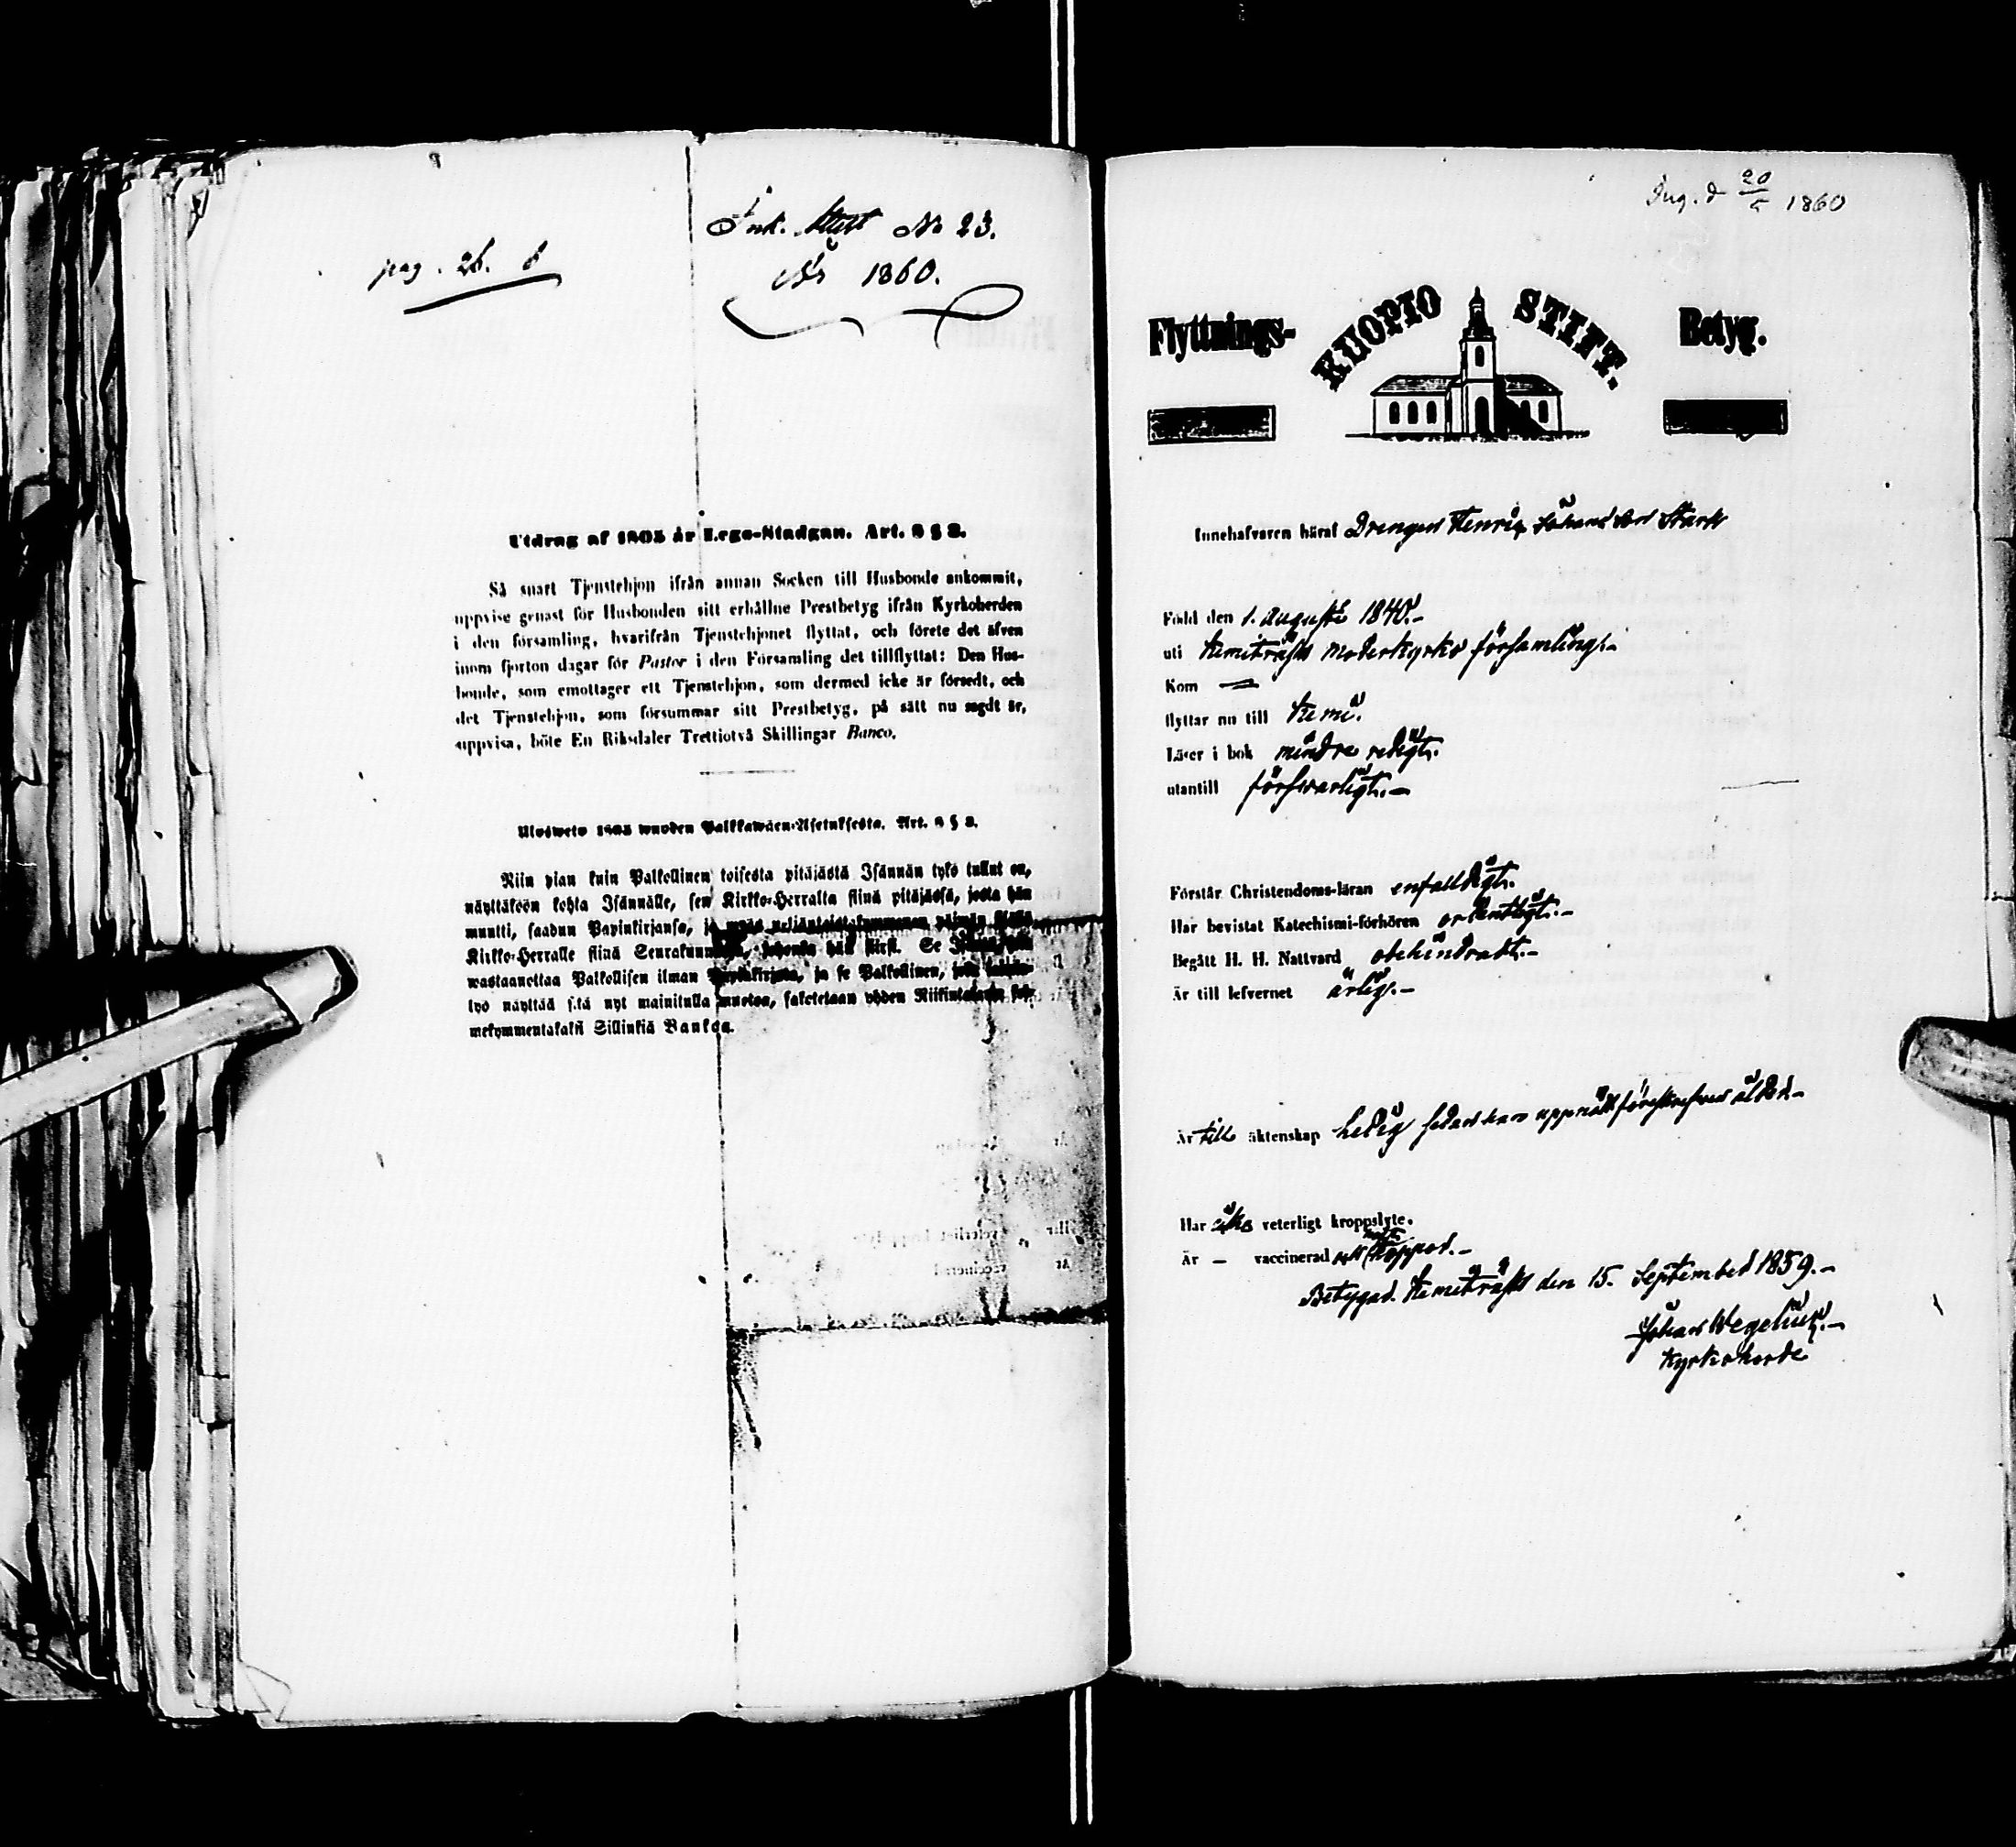 pag. 26. 8
Ink. Att. No 23.
År 1860.
Utdrag af 1805 år Lego-Stadgan. Art. 8 § 2.
Så snart Tjenstehjon ifrån annan Socken till Husbonde ankommit,
uppvise genast för Husbonden sitt erhållne Prestbetyg ifrån Kyrkoherden
i den församling, hvarifrån Tjenstehjonet flyttat, och förete det äfven
inom fjorton dagar för Pastor i den Församling det tillflyttat: Den Hus-
bonde, som emottager ett Tjenstehjon, som dermed icke är försedt, och
det Tjenstehjon, som försummar sitt Prestbetyg, på sätt nu sagdt är,
uppvisa, böte En Riksdaler Trettiotvå Skillingar Banco.
Ulosweto 1805 wuoden Palkkawäen-Asetuksesta. Art. 8 § 2.
Niin pian kuin Palkollinen toisesta pitäjästä Isännän tykö tullut on,
näyttäköön kohta Isännälle, sen Kirkko-Herralta siinä pitäjässä, josta hän
muutti, saadun Papinkirjansa, ja myös neljäntoistakymmenen päiwän sisällä
Kirkko-Herralle siinä Seurakunnassa, johonka hän siirsi. Se
wastaanottaa Palkollisen ilman Papinkirjata, ja se Palkollinen, joka
työ näyttää sitä nyt mainitulla muotoa, sakotetaan yhden Riikintalarin
mekymmentäkaksi Sillinkiä Bankoa.
Ing. d 20/5 1860
Flyttnings- KUOPIO STIFT. Betyg.
Innehafvaren häraf Drengen Henrik Johansson Stark
Född den 1. Augusti 1840.-
uti Kemiträsk Moderkyrko församling.-
Kom —
flyttar nu till Kemi.
Läser i bok mindre redigt.
utantill försvarligt.-
Förstår Christendoms-läran enfaldigt.
Har bevistat Katechismi-förhören ordentligt.-
Begått H. H. Nattvard obehindradt.-
Är till lefvernet ärlig.-
Är till äktenskap ledig sedan han uppnått föreskrefven ålder.-
Har icke veterligt kroppslyte.
Är — vaccinerad haft koppor.-
Betygad. Kemiträsk den 15. September 1859.-
Johan Wegelius.-
Kyrkoherde